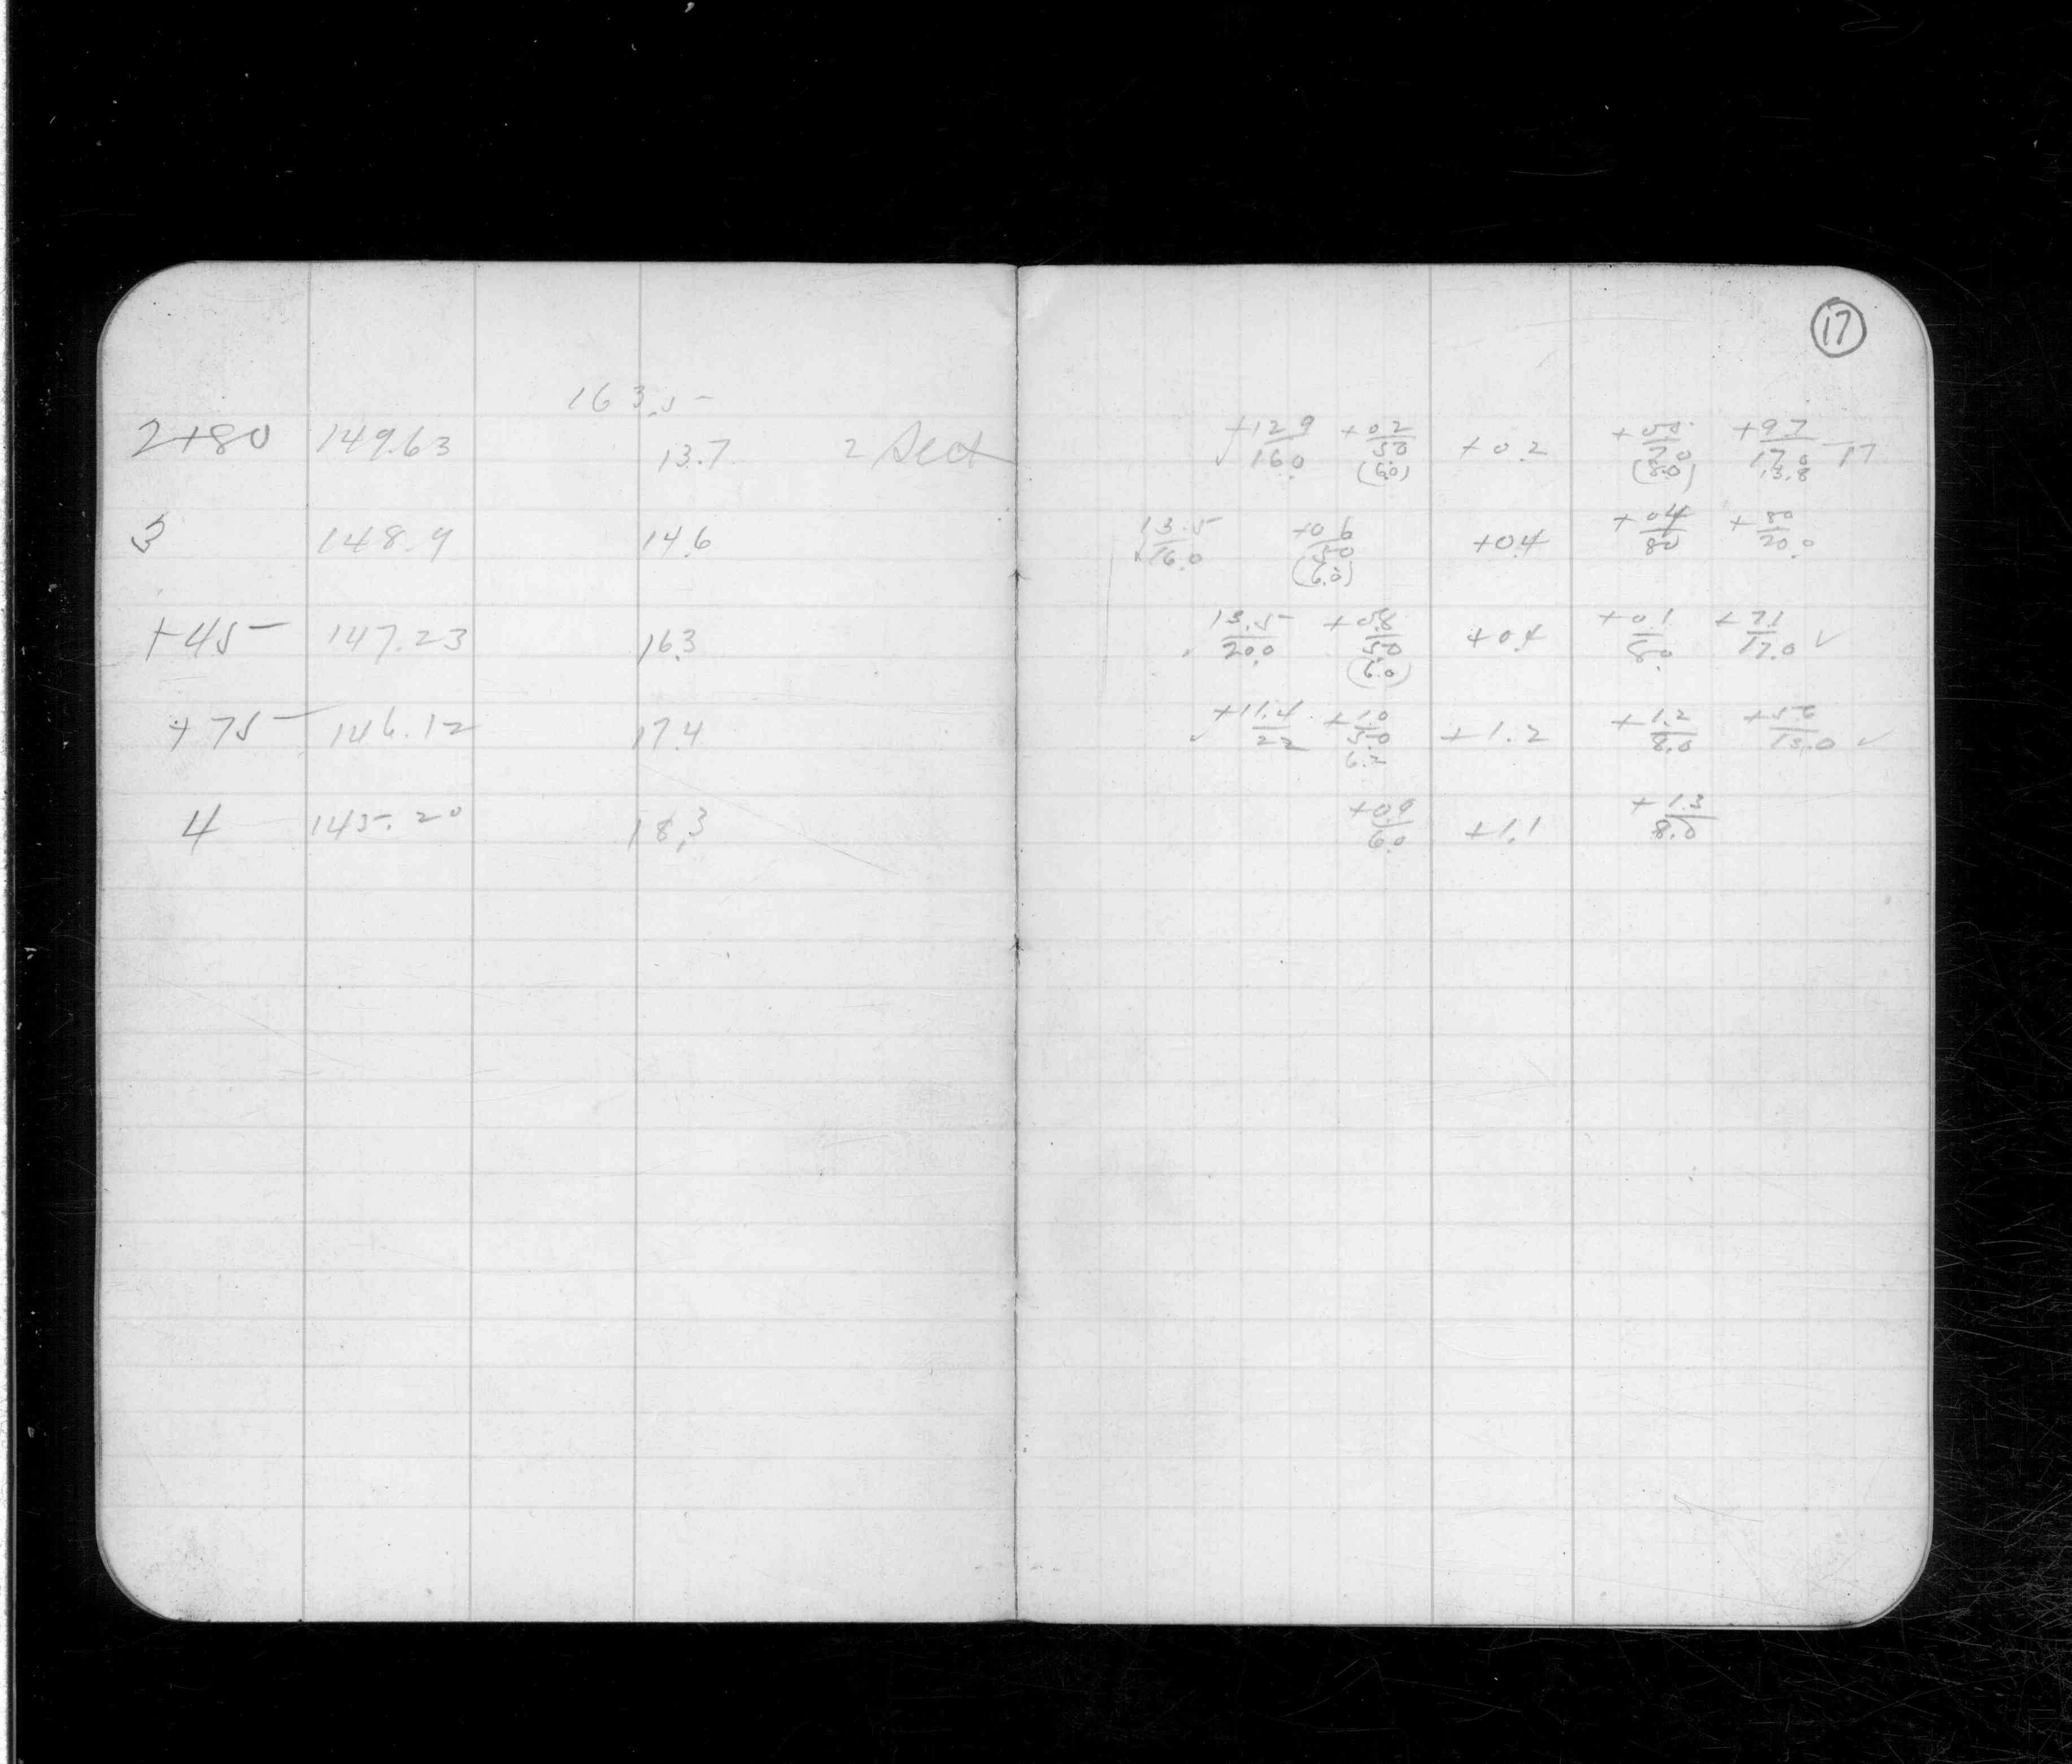 17
163.5
2+80 149.63 13.7 2 Sect
+12.9/16.0 +0.2/5.0 (6.0) +0.2 +0.5/7.0 (8.0) +9.7/17.0 13.8 17
3 148.9 14.6
13.5/16.0 +0.6/5.0 (6.0) +0.4 +0.4/8.0 +8.0/20.0
+45 147.23 16.3
13.5/20.0 +0.8/5.0 (6.0) +0.4 +0.1/8.0 +7.1/17.0 ✓
+75 146.12 17.4
✓ +11.4/22 +1.0/5.0 6.2 +1.2 +1.2/8.0 +5.6/15.0 ✓
4 145.20 18.3
+0.9/6.0 +1.1 +1.3/8.0